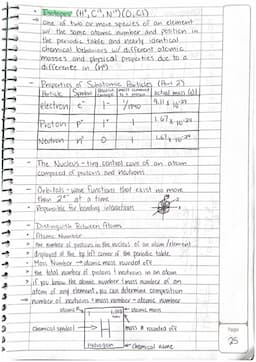 - Isotopes (H², C¹⁴, N¹⁵) (O, Cl)
→ one of two or more species of an element
w/ the same atomic number and position in
the periodic table and nearly identical
chemical behaviors w/ different atomic
masses and physical properties due to a
difference in (n°)
- Properties of Subatomic Particles (Part 2)
Particle Symbol actual mass (g)
electron e⁻ 1- 9.11 x 10⁻²⁸
Proton p⁺ 1⁺ 1 1.67 x 10⁻²⁴
Neutron n° 0 1 1.67 x 10⁻²⁴
- The Nucleus - tiny central core of an atom
composed of protons and neutrons
- Orbitals - wave functions that exist no more
than 2e⁻ at a time
Responsible for bonding interaction
- Distinguish Between Atoms
Atomic Number
> the number of protons in the nucleus of an atom/element
> displayed at the top left corner of the periodic table
Mass Number → atomic mass rounded off
> the total number of protons & neutrons in an atom
> if you know the atomic number & mass number of an
atom of any element, you can determine composition
→ number of neutrons = mass number - atomic number
atomic # 1 1.008 atomic mass
chemical symbol H mass # rounded off
Hydrogen chemical name
Page
25